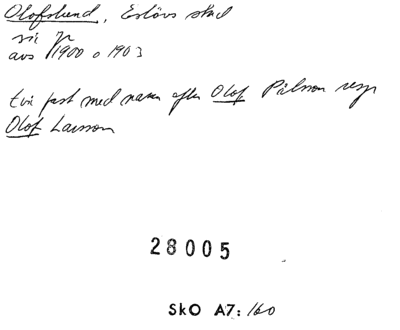 Olofslund, Eslövs stad
avs 1900 o 1903
två fast med namn efter Olof Pålsson resp
Olof Larsson
28005
SkO A7: 160